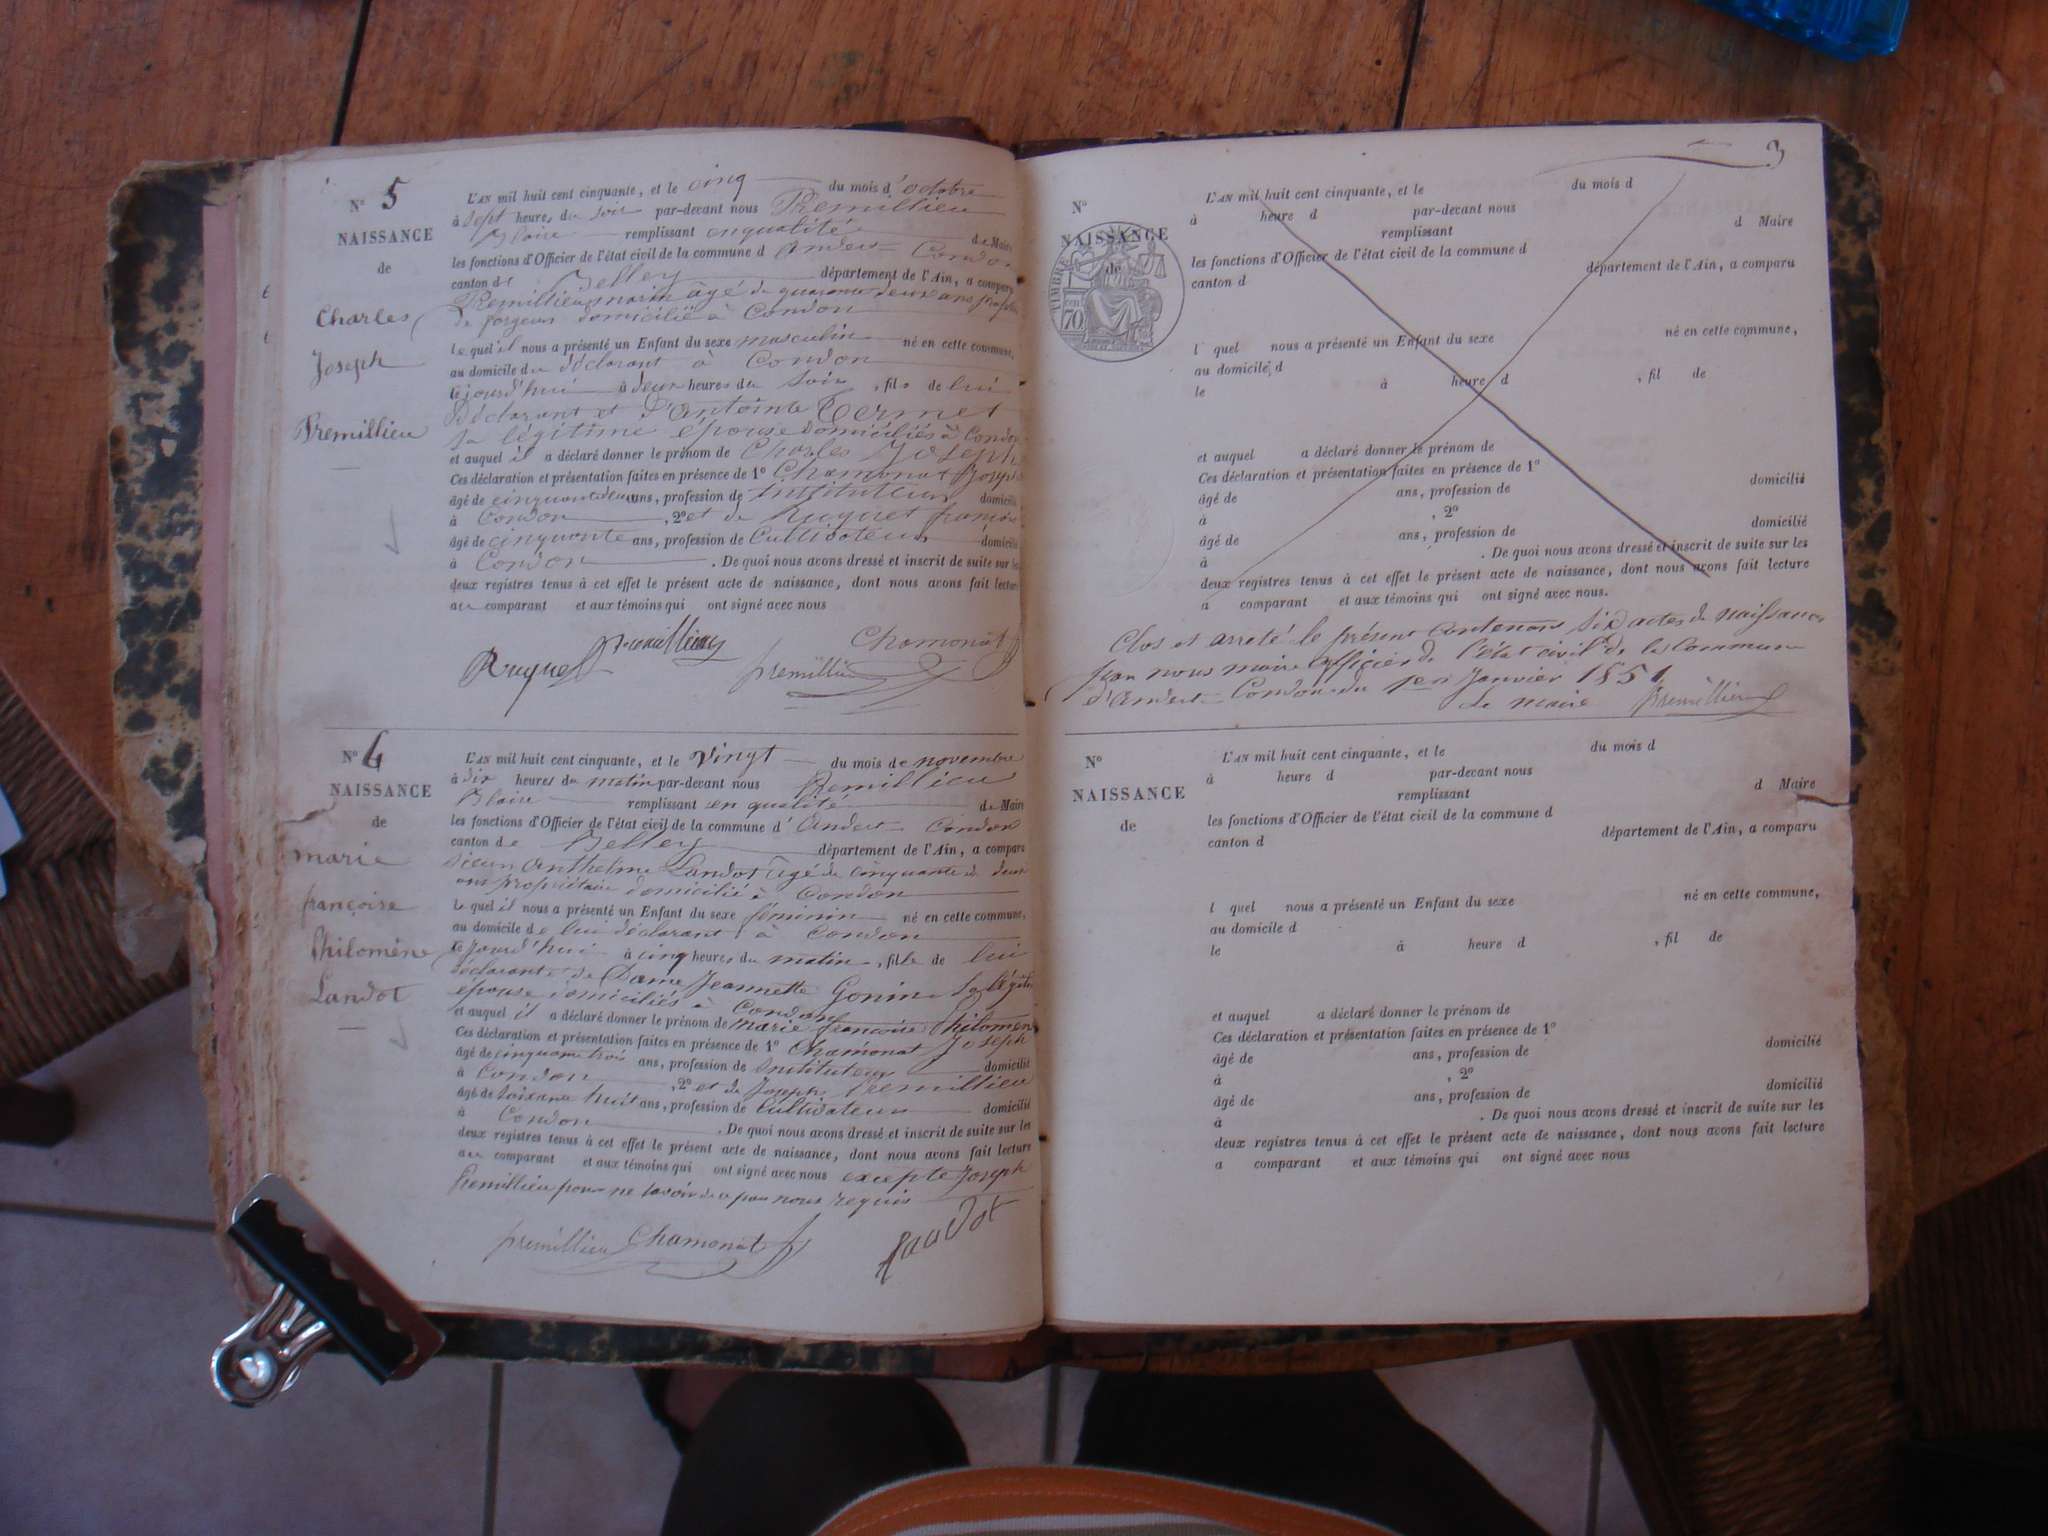 N° 5
NAISSANCE
de
Charles
Joseph
Premillieu
L'AN mil huit cent cinquante, et le cinq du mois d'octobre
à sept heures du soir par-devant nous Premillieu
Blaise remplissant en qualité de Maire
les fonctions d'Officier de l'état civil de la commune d'Andert-Condon
canton de Belley département de l'Ain, a comparu
Premillieu âgé de quarante deux ans
de forgeur domicilié à Condon
lequel il nous a présenté un Enfant du sexe masculin né en cette commune,
au domicile du déclarant à Condon
le jourd'hui à deux heures du soir, fils de lui
Déclarant et d'Antointe Termet
sa légitime épouse domiciliés à Condon
et auquel il a déclaré donner le prénom de Charles Joseph
Ces déclaration et présentation faites en présence de 1° Chamonat Joseph
âgé de cinquante deux ans, profession de Instituteur domicilié
à Condon, 2° et de Huguet
âgé de cinquante ans, profession de Cultivateur domicilié
à Condon. De quoi nous avons dressé et inscrit de suite sur les
deux registres tenus à cet effet le présent acte de naissance, dont nous avons fait lecture
au comparant et aux témoins qui ont signé avec nous
Premillieu Chamonat
premillieu
N° 6
NAISSANCE
de
marie
françoise
Philomène
Landot
L'AN mil huit cent cinquante, et le vingt du mois de novembre
à dix heures du matin par-devant nous Premillieu
Blaise remplissant en qualité de Maire
les fonctions d'Officier de l'état civil de la commune d'Andert-Condon
canton de Belley département de l'Ain, a comparu
sieur Anthelme Landot âgé de cinquante deux
ans propriétaire domicilié à Condon
lequel il nous a présenté un Enfant du sexe féminin né en cette commune,
au domicile de lui déclarant à Condon
le jourd'hui à cinq heures du matin, fille de lui
déclarant et de Dame Jeannette Gonin sa légitime
épouse domiciliés à Condon
et auquel il a déclaré donner le prénom de marie françoise Philomène
Ces déclaration et présentation faites en présence de 1° Chamonat Joseph
âgé de cinquante trois ans, profession de Instituteur domicilié
à Condon, 2° et de Joseph Premillieu
âgé de soixante huit ans, profession de Cultivateur domicilié
à Condon. De quoi nous avons dressé et inscrit de suite sur les
deux registres tenus à cet effet le présent acte de naissance, dont nous avons fait lecture
au comparant et aux témoins qui ont signé avec nous excepté Joseph
Premillieu pour ne savoir de ce par nous requis
premillieu Chamonat Landot
3
N°
NAISSANCE
de
TIMBRE
70
L'AN mil huit cent cinquante, et le du mois d
à heure d par-devant nous
remplissant d Maire
les fonctions d'Officier de l'état civil de la commune d
canton d département de l'Ain, a comparu
l quel nous a présenté un Enfant du sexe né en cette commune,
au domicile d
le à heure d , fil de
et auquel a déclaré donner le prénom de
Ces déclaration et présentation faites en présence de 1°
âgé de ans, profession de domicilié
à , 2°
âgé de ans, profession de domicilié
à . De quoi nous avons dressé et inscrit de suite sur les
deux registres tenus à cet effet le présent acte de naissance, dont nous avons fait lecture
a comparant et aux témoins qui ont signé avec nous.
Clos et arreté le présent contenant six actes de naissance
par nous maire officier de l'état civil de la Commune
d'Andert-Condon du 1er Janvier 1851
Le maire Premillieu
N°
NAISSANCE
de
L'AN mil huit cent cinquante, et le du mois d
à heure d par-devant nous
remplissant d Maire
les fonctions d'Officier de l'état civil de la commune d
canton d département de l'Ain, a comparu
l quel nous a présenté un Enfant du sexe né en cette commune,
au domicile d
le à heure d , fil de
et auquel a déclaré donner le prénom de
Ces déclaration et présentation faites en présence de 1°
âgé de ans, profession de domicilié
à , 2°
âgé de ans, profession de domicilié
à . De quoi nous avons dressé et inscrit de suite sur les
deux registres tenus à cet effet le présent acte de naissance, dont nous avons fait lecture
a comparant et aux témoins qui ont signé avec nous